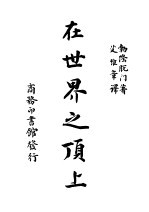 勃隆脫門著
艾維章譯
在世界之頂上
商務印書館發行